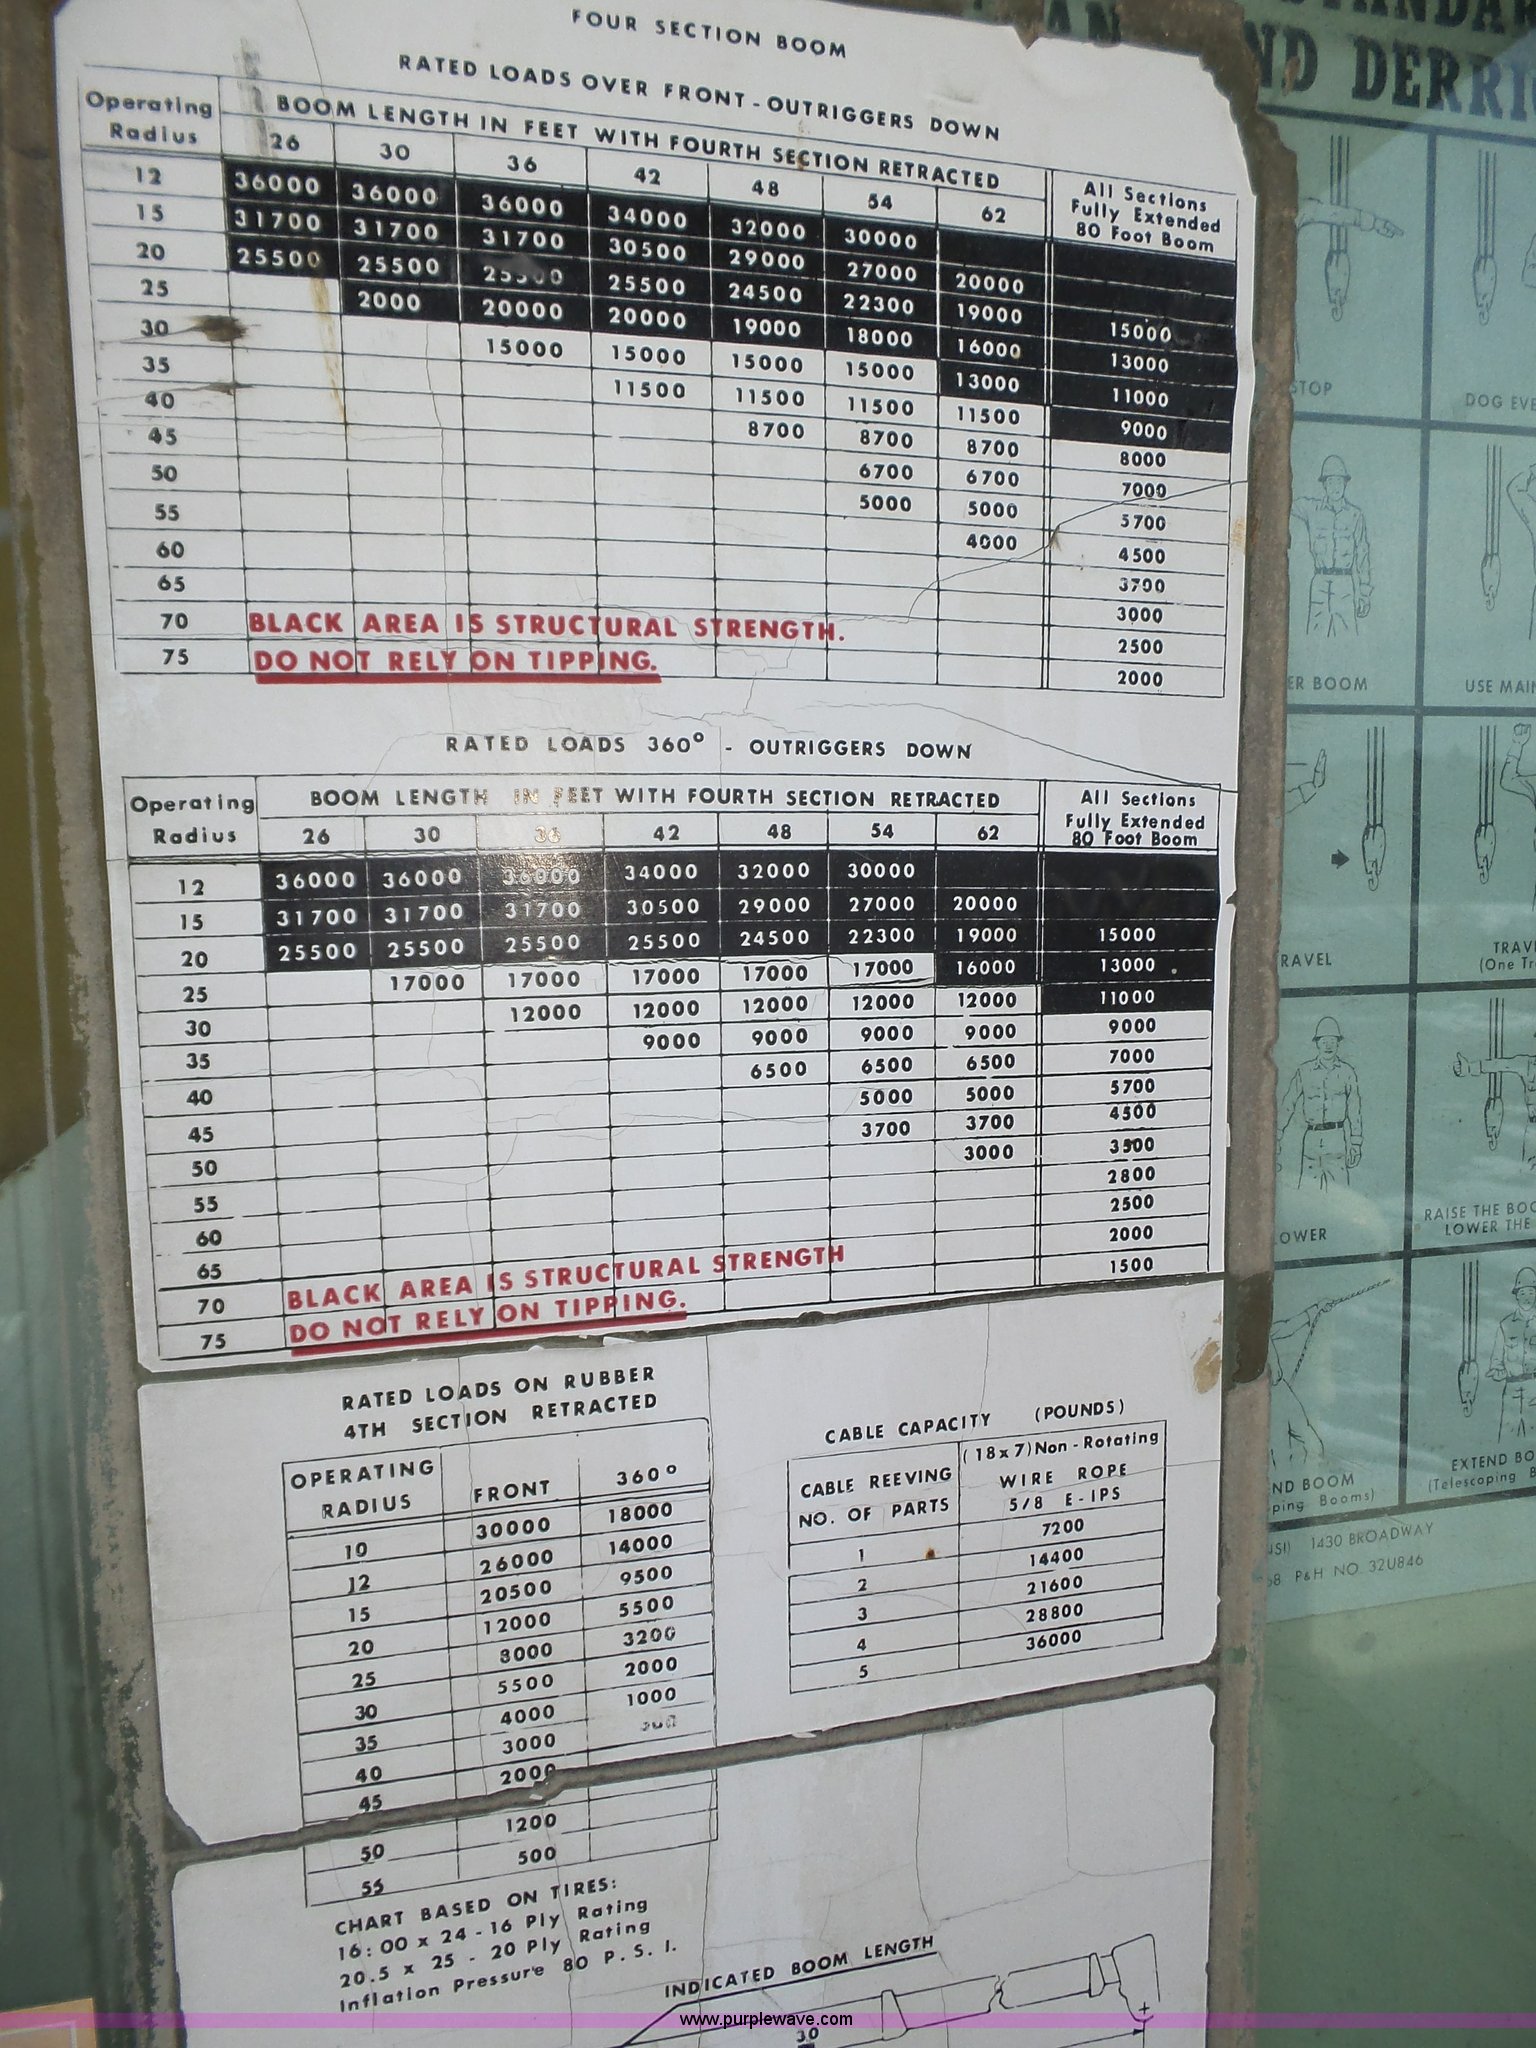 FOUR SECTION BOOM
RATED LOADS OVER FRONT - OUTRIGGERS DOWN
Operating Radius
BOOM LENGTH IN FEET WITH FOURTH SECTION RETRACTED
All Sections
Fully Extended
80 Foot Boom
26 30 36 42 48 54 62
12 36000 36000 36000 34000 32000 30000
15 31700 31700 31700 30500 29000 27000 20000
20 25500 25500 25500 25500 24500 22300 19000 15000
25 2000 20000 20000 19000 18000 16000 13000
30 15000 15000 15000 15000 13000 11000
35 11500 11500 11500 11500 9000
40 8700 8700 8700 8000
45 6700 6700 7000
50 5000 5000 5700
55 4000 4500
60 3700
65 3000
70 BLACK AREA IS STRUCTURAL STRENGTH. 2500
75 DO NOT RELY ON TIPPING. 2000
RATED LOADS 360° - OUTRIGGERS DOWN
Operating Radius
BOOM LENGTH IN FEET WITH FOURTH SECTION RETRACTED
All Sections
Fully Extended
80 Foot Boom
26 30 36 42 48 54 62
12 36000 36000 36000 34000 32000 30000
15 31700 31700 31700 30500 29000 27000 20000
20 25500 25500 25500 25500 24500 22300 19000 15000
25 17000 17000 17000 17000 17000 16000 13000
30 12000 12000 12000 12000 12000 11000
35 9000 9000 9000 9000 9000
40 6500 6500 6500 7000
45 5000 5000 5700
50 3700 3700 4500
55 3000 3500
60 2800
65 2500
70 BLACK AREA IS STRUCTURAL STRENGTH 2000
75 DO NOT RELY ON TIPPING. 1500
RATED LOADS ON RUBBER
4TH SECTION RETRACTED
OPERATING RADIUS FRONT 360°
10 30000 18000
12 26000 14000
15 20500 9500
20 12000 5500
25 8000 3200
30 5500 2000
35 4000 1000
40 3000
45 2000
50 1200
55 500
CHART BASED ON TIRES:
16:00 x 24 - 16 Ply Rating
20.5 x 25 - 20 Ply Rating
Inflation Pressure 80 P. S. I.
CABLE CAPACITY (POUNDS)
CABLE REEVING
NO. OF PARTS
(18x7) Non-Rotating
WIRE ROPE
5/8 E-IPS
1 7200
2 14400
3 21600
4 28800
5 36000
INDICATED BOOM LENGTH
30
ND DERRI
STOP
DOG EVE
ER BOOM
USE MAIN
RAVEL
TRAV
(One Tr
OWER
RAISE THE BOO
LOWER THE
ND BOOM
ping Booms)
EXTEND BO
(Telescoping B
1430 BROADWAY
P&H NO. 32U846
www.purplewave.com